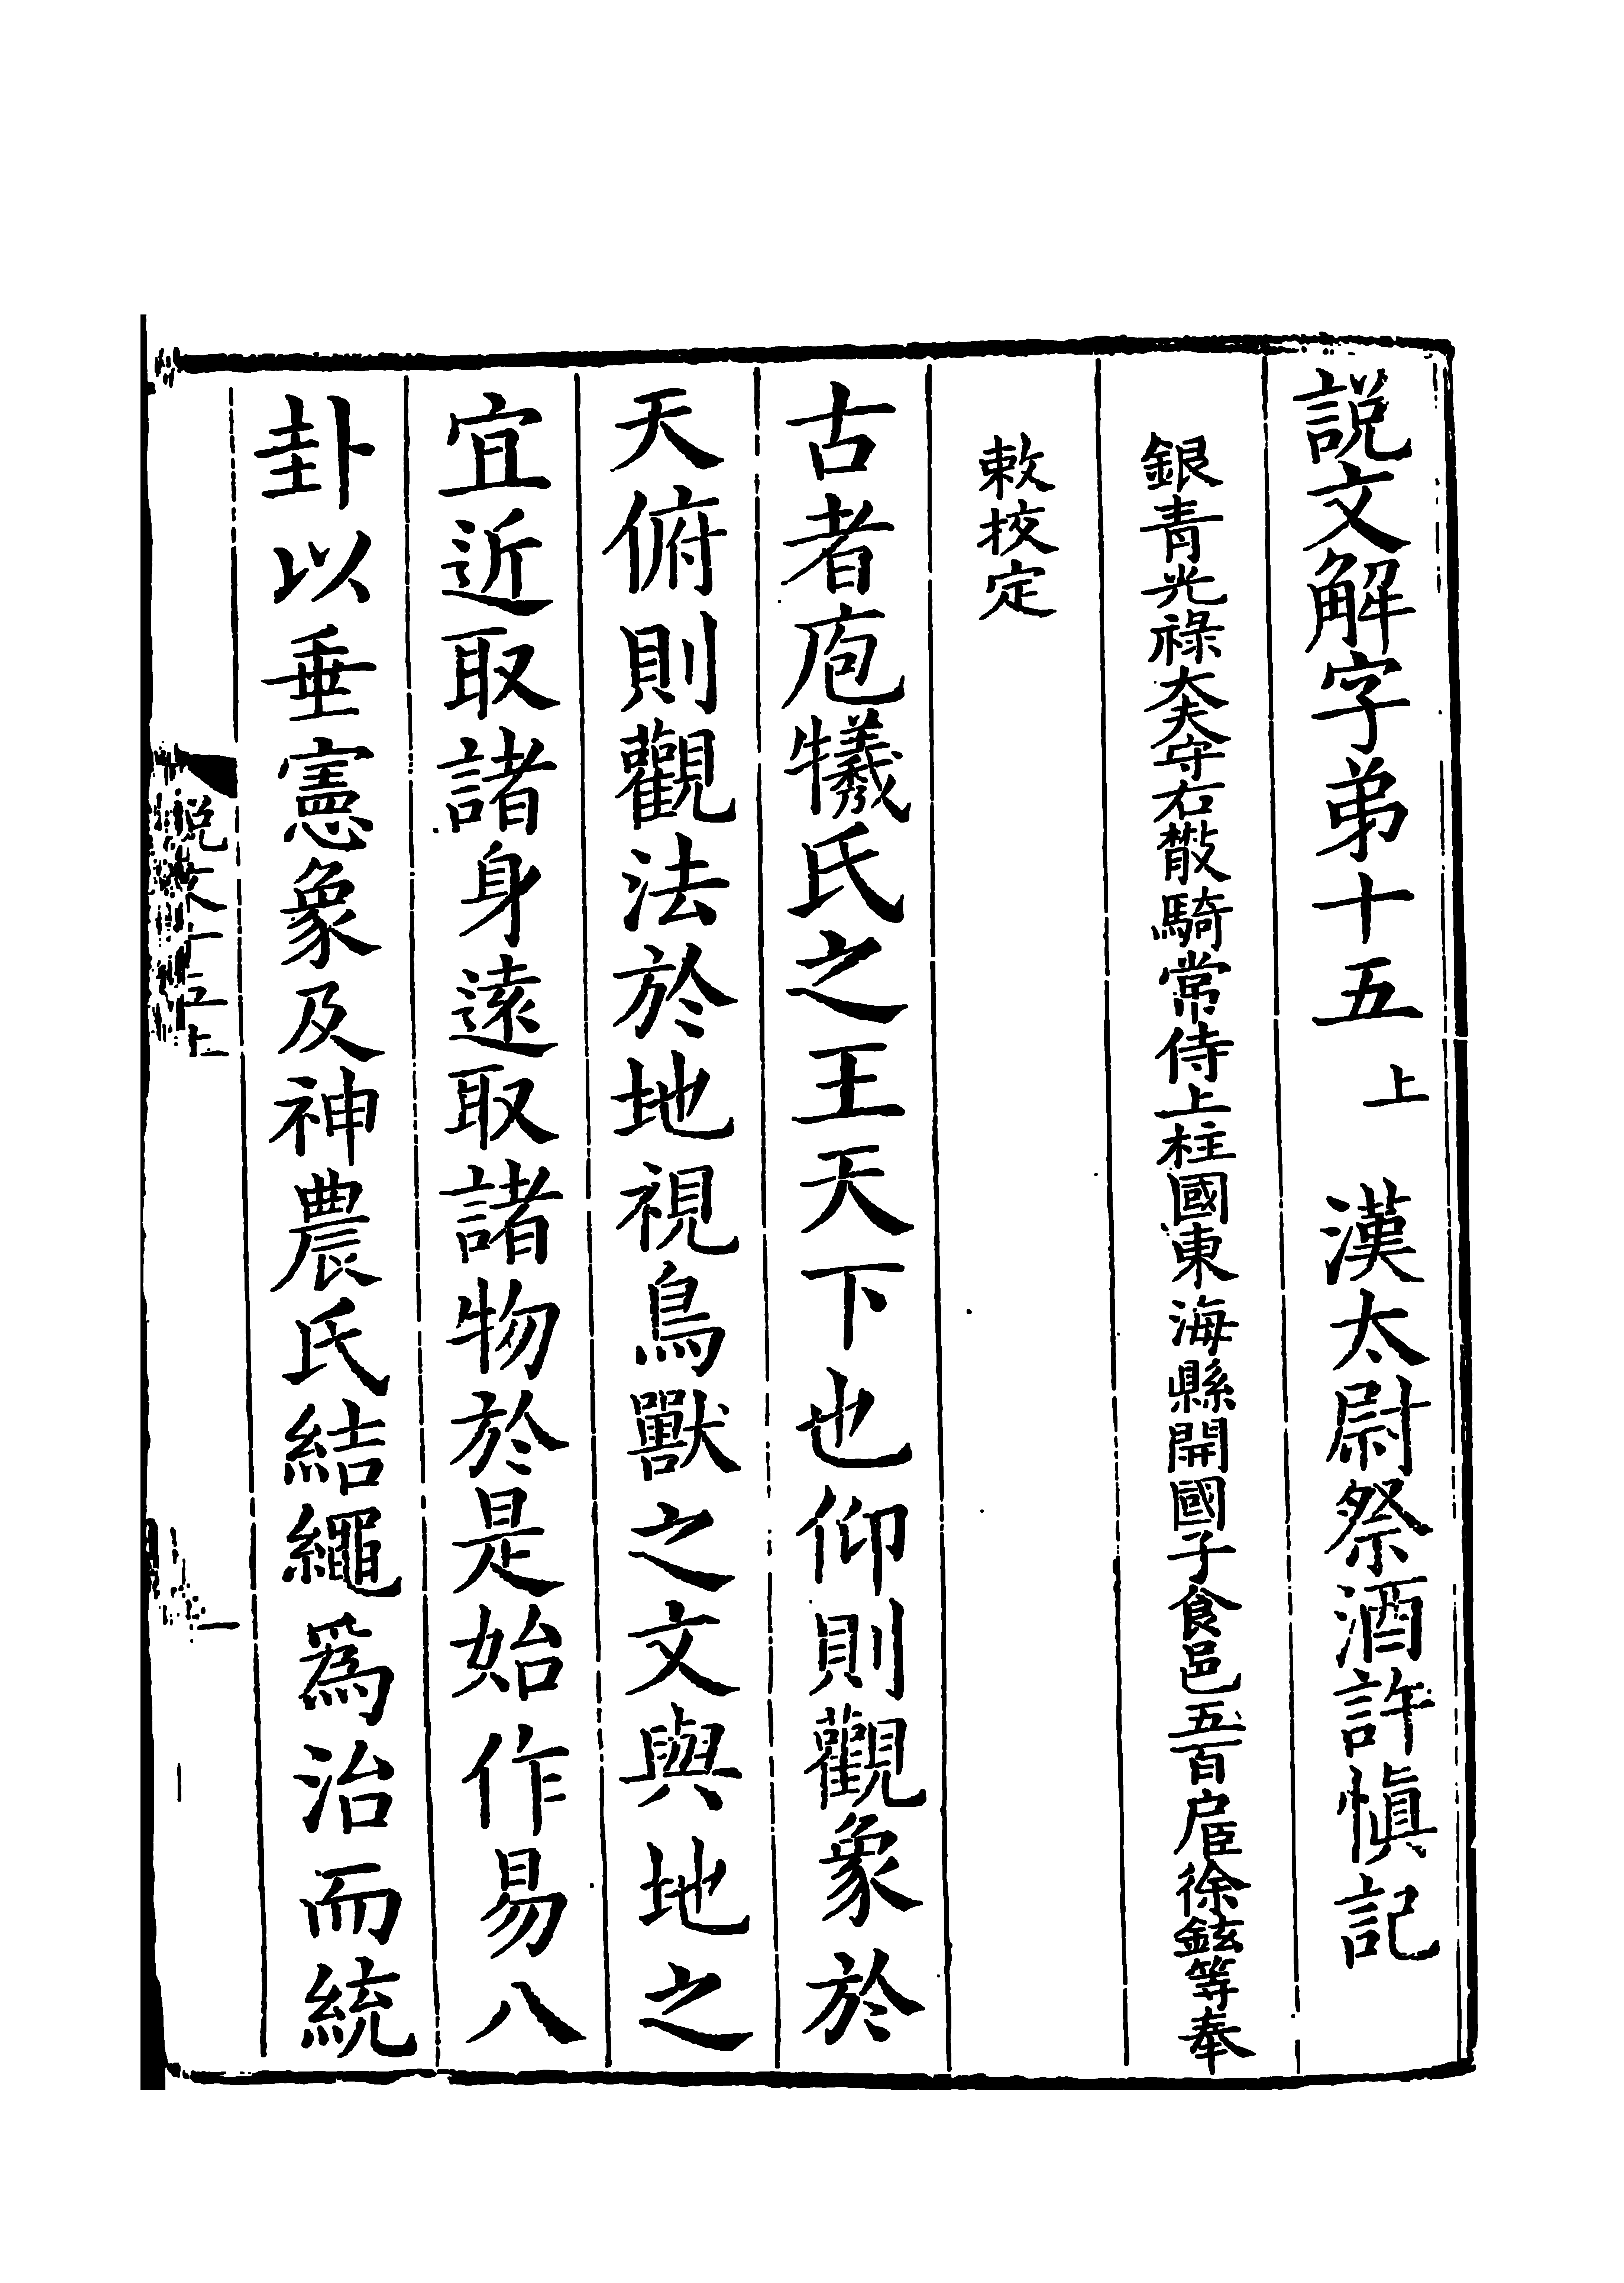 説文解字弟十五上　漢太尉祭酒許慎記
銀青光祿大夫守右散騎常侍上柱國東海縣開國子食邑五百戶臣徐鉉等奉
敕挍定
古者庖犧氏之王天下也仰則觀象於
天俯則觀法於地視鳥獸之文與地之
宜近取諸身遠取諸物於是始作易八
卦以垂憲象及神農氏結繩爲治而統
説文十五上
一